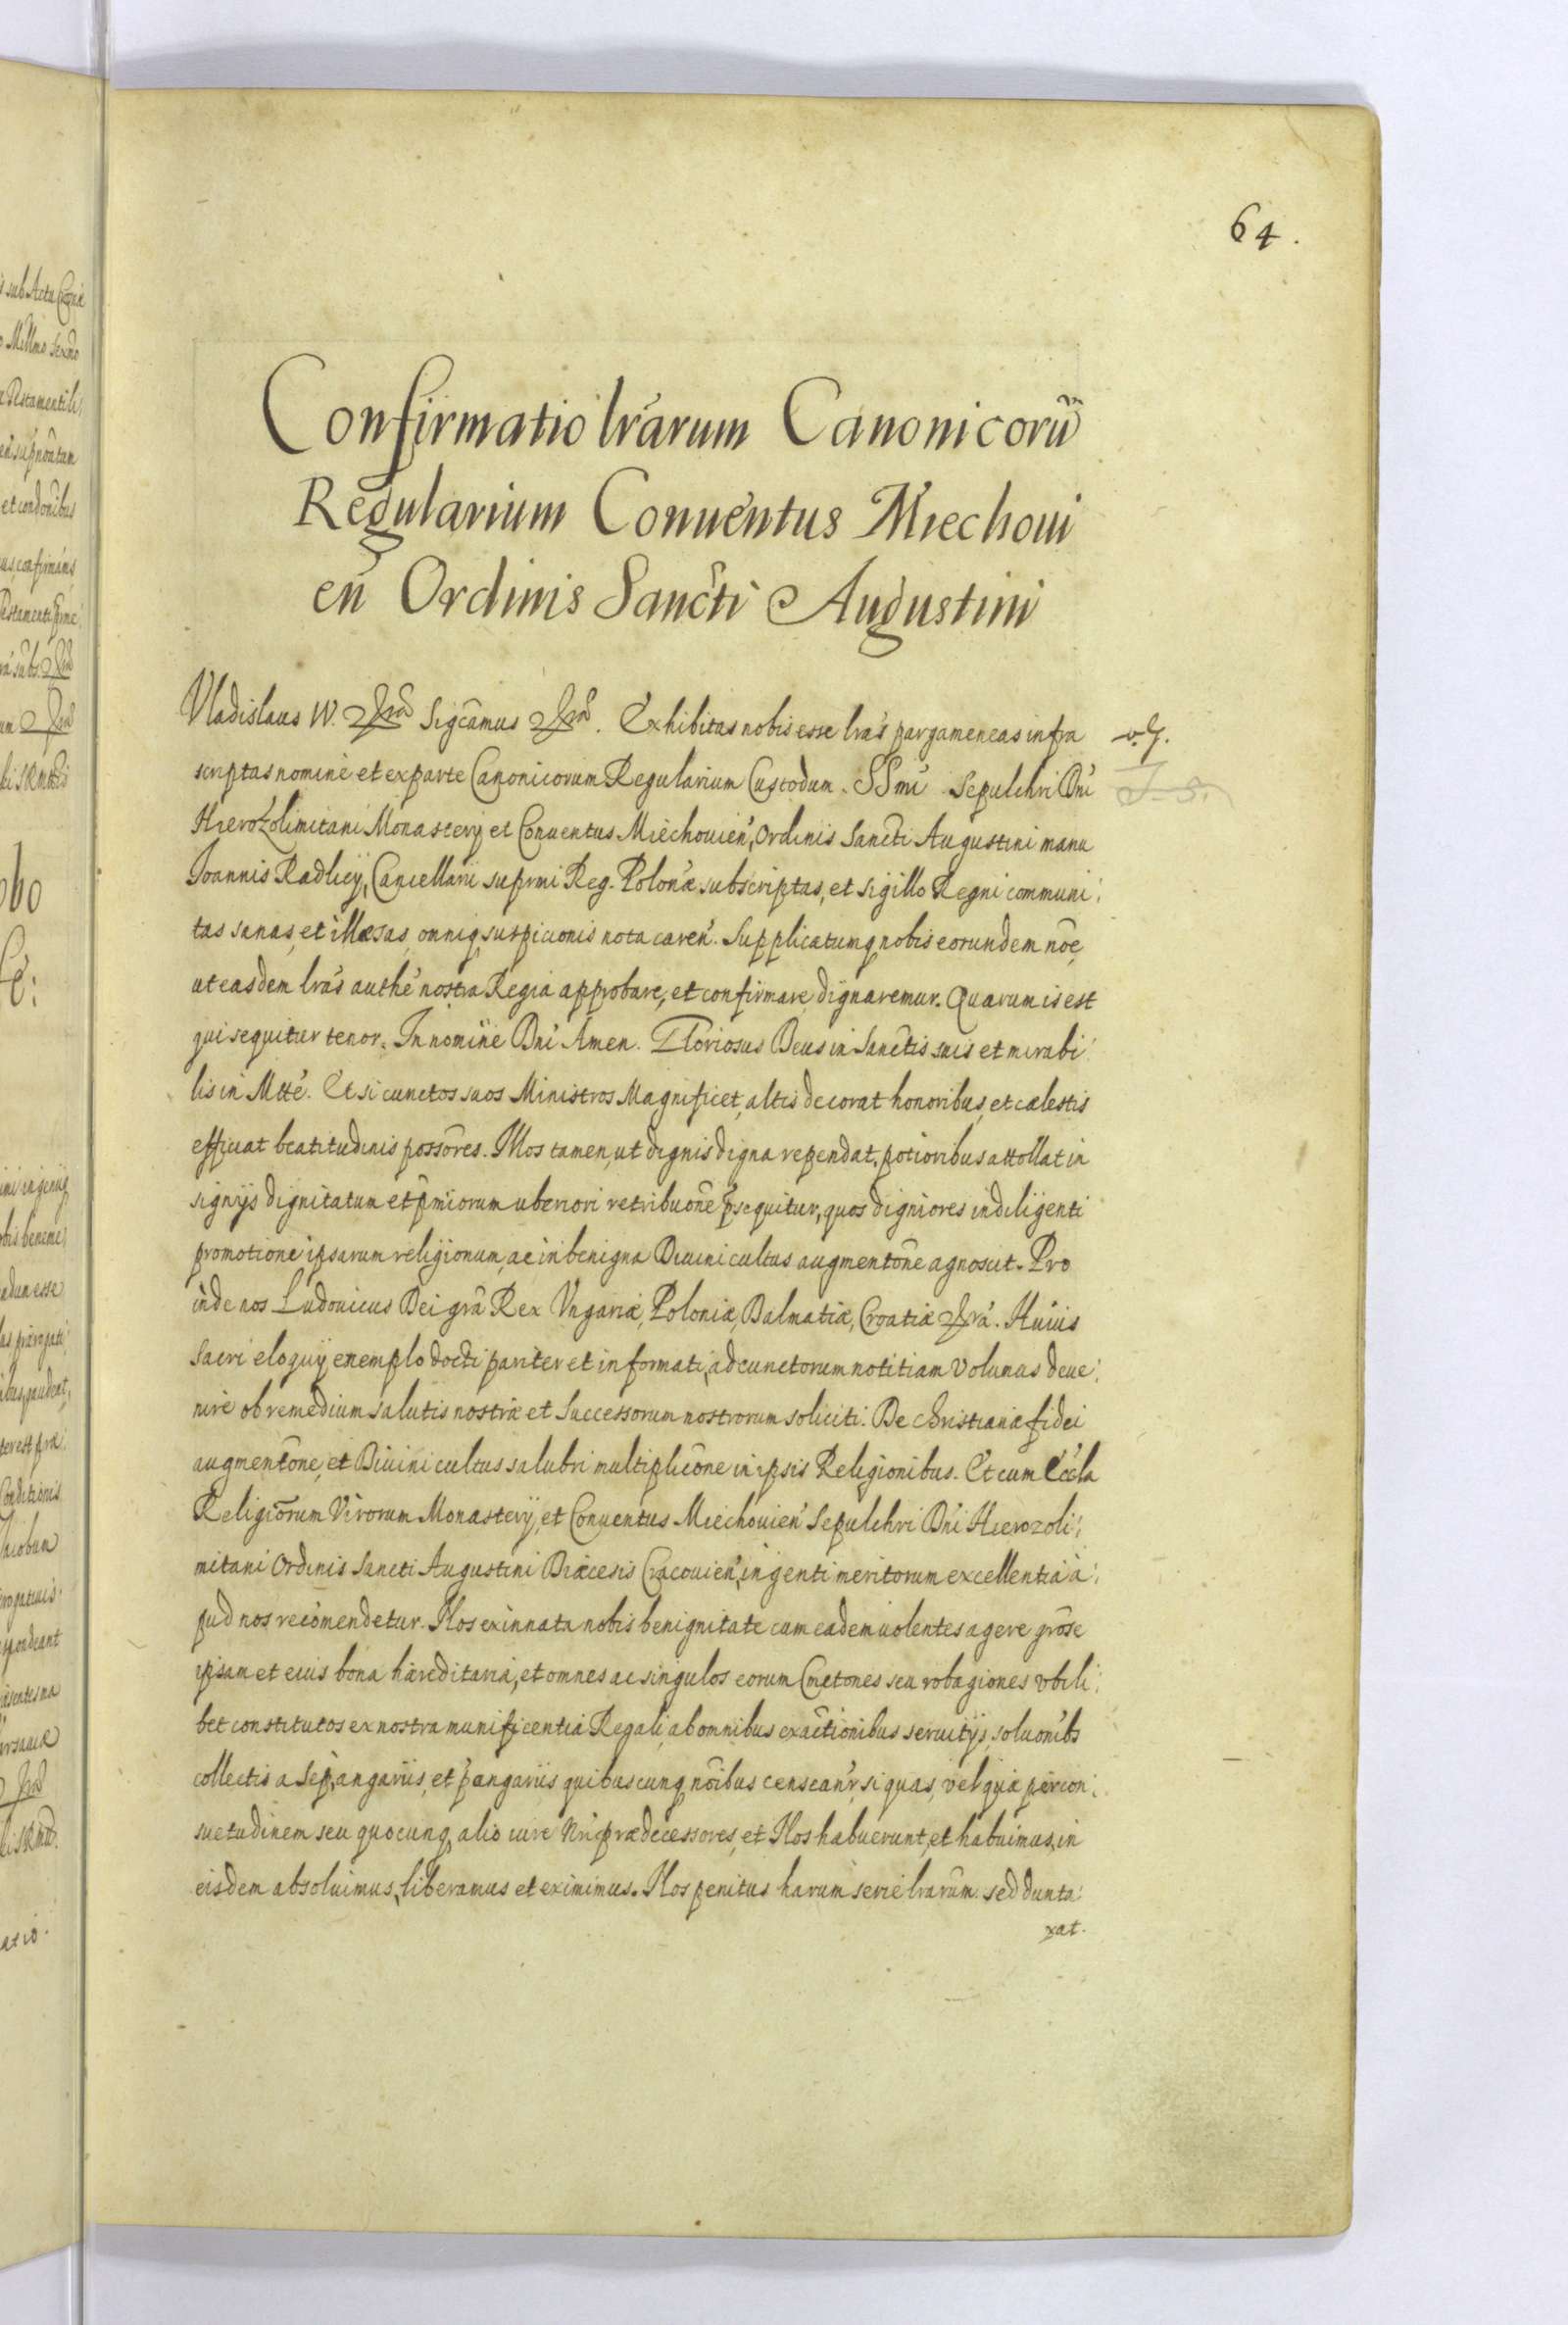 64.
Confirmatio lrarum Canonicorũ
Regularium Conuentus Miechoui
eñ Ordinis Sancti Augustini
Vladislaus IV. Sigcamus. Exhibitas nobis esse lras pargameneas infra
scriptas nomine et ex parte Canonicorum Regularium Custodum SSmi Sepulchri Dni
Hierozolimitani Monastery et Conuentus Miechouień, Ordinis Sancti Augustini manu
Joannis Radlicy, Cancellarii suprmi Reg. Polonæ subscriptas, et sigillo Regni communi:
tas sanas, et illæsas, omniq suspicionis nota careń. Supplicatumq nobis eorundem nõe,
ut easdem lras authe nostra Regia approbare, et confirmare dignaremur. Quarum is est
qui sequitur tenor. In nomine Dni Amen. Gloriosus Deus in Sanctis suis et mirabi
lis in Mtte. Et si cunctos suos Ministros Magnificet, altis decorat honoribus, et cælestis
efficiat beatitudinis possores. Illos tamen, ut dignis digna rependat, potioribus attollat in
signijs dignitatum et p̃miorum uberiori retribuõne psequitur, quos digniores in diligenti
promotione ipsarum religionum, ac in benigna Diuini cultus augmentõne agnoscit. Pro
inde nos Ludouicus Dei grã Rex Vngariæ, Poloniæ, Dalmatiæ, Croatiæ. Huius
Sacri eloquij exemplo docti pariter et informati, ad cunctorum notitiam volumus deue:
nire ob remedium salutis nostræ et Successorum nostrorum soliciti. De Christianæ fidei
augmentõne, et Diuini cultus salubri multiplicõne in ipsis Religionibus. Et cum Eccla
Religiõrum Virorum Monastery, et Conuentus Miechouień Sepulchri Dni Hierozoli:
mitani Ordinis Sancti Augustini Diæcesis Cracouień, ingenti meritorum excellentia a:
pud nos recõmendetur. Nos ex innata nobis benignitate cum eadem uolentes agere grõse
ipsam et eius bona hæreditaria, et omnes ac singulos eorum Cmetones seu robagiones vbili:
bet constitutos ex nostra munificentia Regali, ab omnibus exactionibus seruitijs, soluonibs
collectis a Sep, angariis, et pangariis quibuscunq nõibus censeanr, si quas, vel quæ per con:
suetudinem seu quocunq alio iure Nri prædecessores, et Nos habuerunt, et habuimus, in
eisdem absoluimus, liberamus et eximimus. Nos penitus harum serie lrarum. sed dunta:
xat.